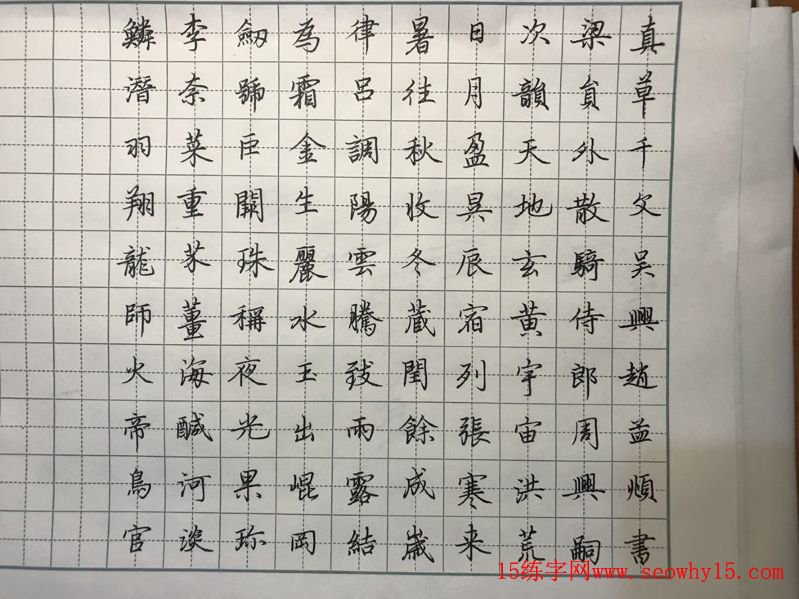 真草千文吴興趙益順書
梁員外散騎侍郎周興嗣
次韻天地玄黄宇宙洪荒
日月盈昃辰宿列張寒来
暑往秋收冬蔵閏餘成歲
律吕調陽雲騰致雨露結
為霜金生麗水玉出崐岡
劒號巨闕珠稱夜光果珎
李柰菜重芥薑海鹹河淡
鱗潛羽翔龍師火帝鳥官
15练字网www.seowhy15.com